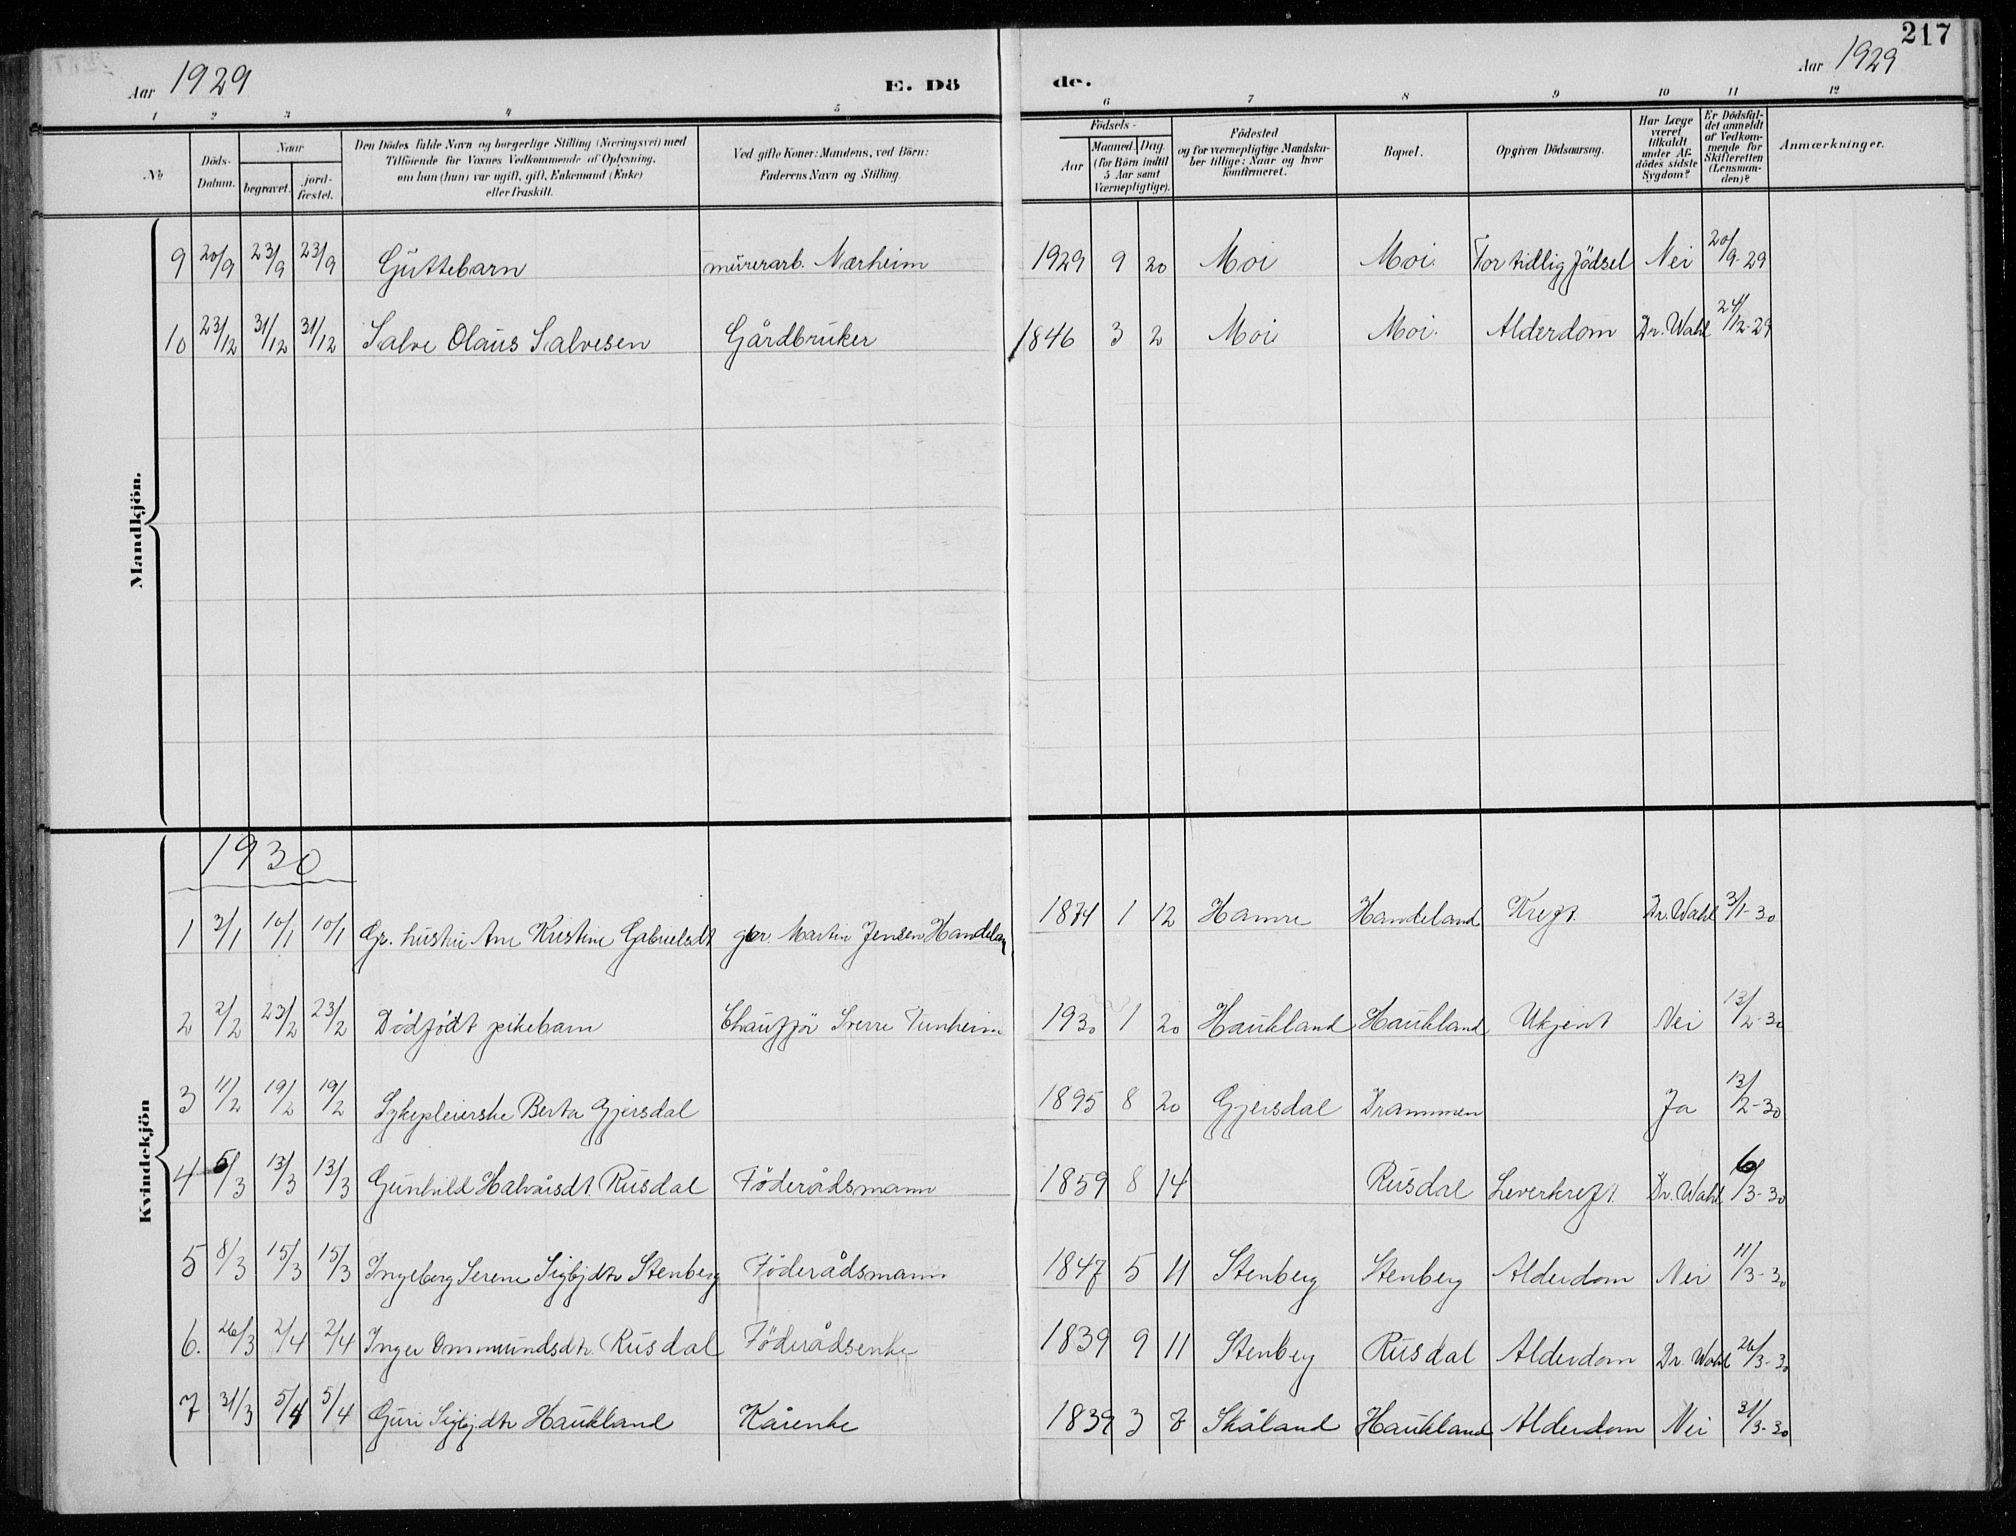 217
Aar 1929 E. Dö de. Aar 1929
1 2 3 4 5 6 7 8 9 10 11 12
№ Döds-Datum. Naar begravet. jord-fæstet. Den Dödes fulde Navn og borgerlige Stilling (Næringsvei) med Tilföiende for Voxnes Vedkommende af Oplysning, om han (hun) var ugift, gift, Enkemand (Enke) eller fraskilt. Ved gifte Koner: Mandens, ved Börn: Faderens Navn og Stilling. Födsels- Aar Maaned. Dag. (for Börn indtil 5 Aar samt Værnepligtige). Födested og for værnepligtige Mandskaber tillige: Naar og hvor konfirmeret. Bopæl. Opgiven Dödsaarsag. Har Læge været tilkaldt under Afdödes sidste Sygdom? Er Dödsfaldet anmeldt af Vedkommende for Skifteretten (Lensmanden)? Anmærkninger.
Mandkjön.
9 20/9 23/9 23/9 Guttebarn murerarb. Nærheim 1929 9 20 Moi Moi. For tidlig födsel Nei 20/9-29
10 23/12 31/12 31/12 Salve Olaus Salvesen Gårdbruker 1846 3 2 Moi Moi. Alderdom Dr. Wahl 24/12-29
Kvindekjön
1930
1 3/1 10/1 10/1 Gr. hustru Ane Kristine Gabrielsdt gbr. Martin Jensen Handelan 1874 1 12 Hamre Handeland Kreft Dr. Wahl 3/1-30
2 2/2 23/2 23/2 Dödfödt pikebarn Chaufför Sverre Tunheim 1930 1 20 Haukland Haukland Ukjent Nei 13/2-30
3 11/2 19/2 19/2 Sykepleierske Berta Gjersdal 1895 8 20 Gjersdal Drammen Ja 13/2-30
4 5/3 13/3 13/3 Gunhild Halvorsdt. Rusdal Föderådsmann 1859 8 14 Rusdal Leverkreft Dr. Wahl 6/3-30
5 8/3 15/3 15/3 Ingeborg Serene Sigbjdtr Stenberg Föderådsmann 1847 5 11 Stenberg Stenberg Alderdom Nei 11/3-30
6. 26/3 2/4 2/4 Inger Ommundsdtr. Rusdal Föderådsenke 1839 9 11 Stenberg Rusdal Alderdom Dr. Wahl 26/3-30
7 31/3 5/4 5/4 Guri Sigbjdtr Haukland Kårenke 1839 3 7 Skåland Haukland Alderdom Nei 31/3-30